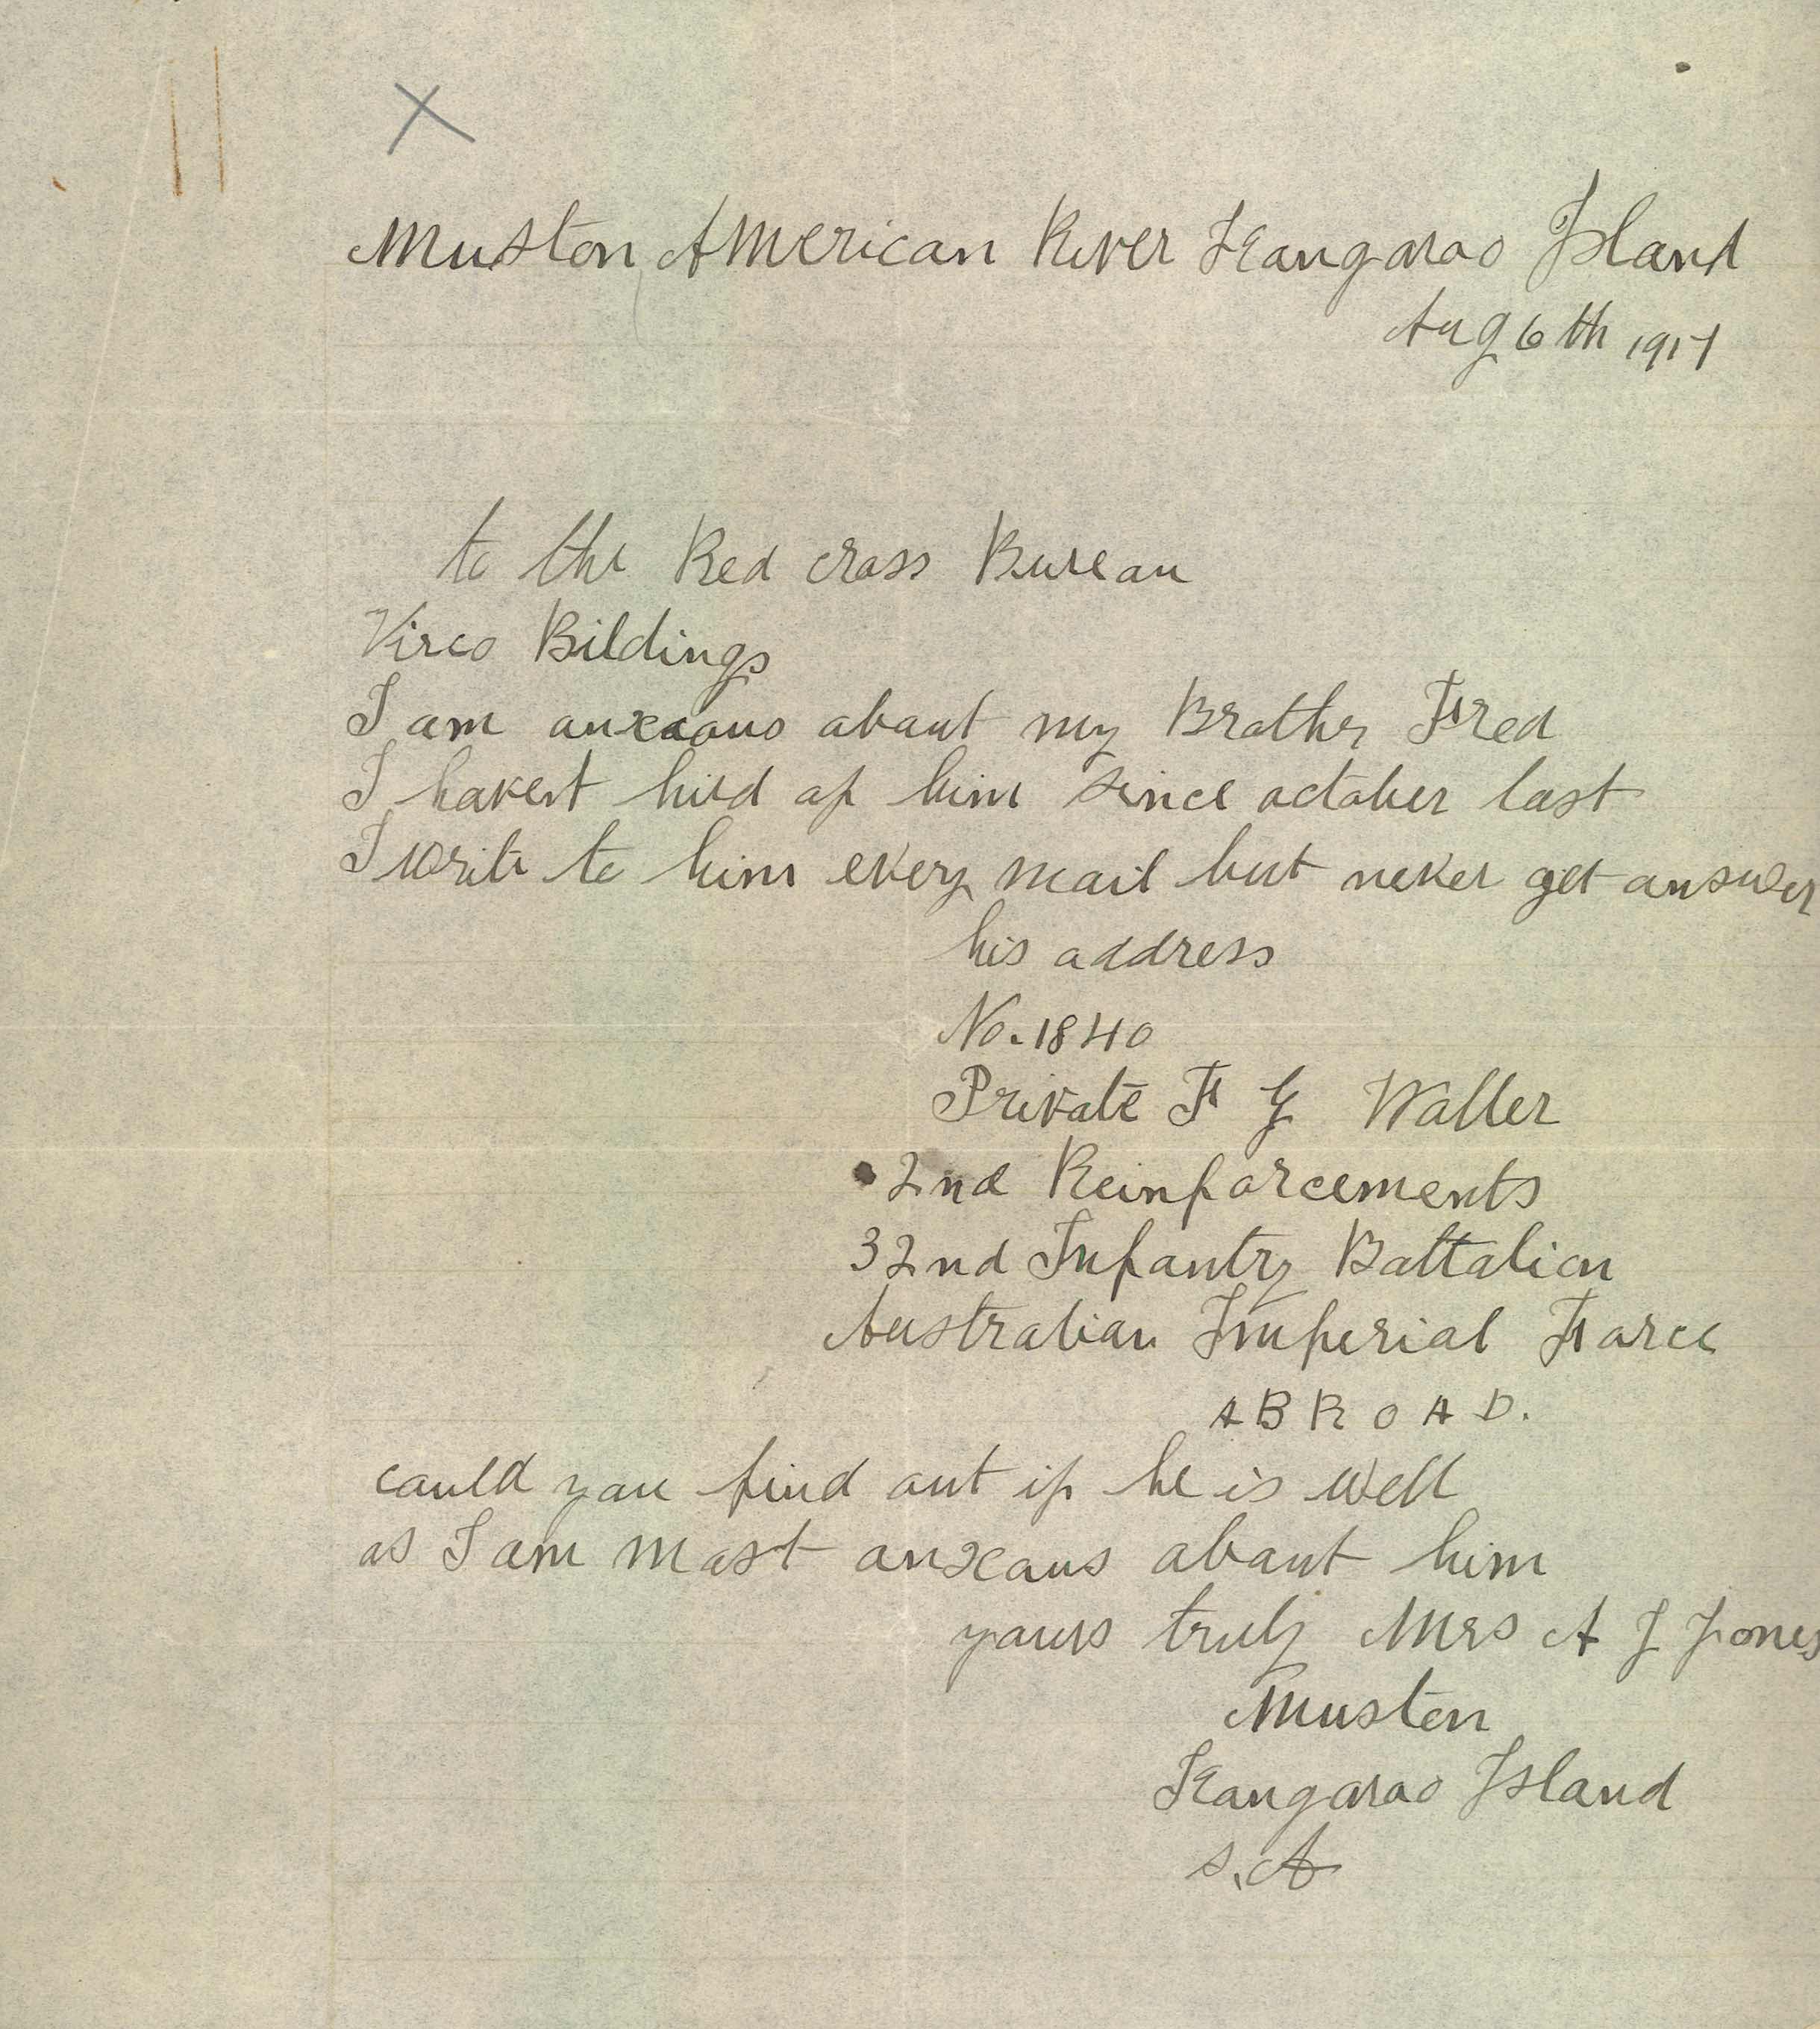 Muston American River Kangaroo Island
Aug 6th 1917
to the Red cross Bureau
Virco Bildings
I am anxaous about my Brother Fred
I havent hird of him since october last
I write to him every mail but never get answer
his address
No. 1840
Private F G Waller
2nd Reinforcements
32nd Infantry Battalion
Australian Imperial Force
ABROAD.
could you find out if he is well
as I am most anxous about him
yours truly Mrs A J Jones
Muston
Kangaroo Island
S.A